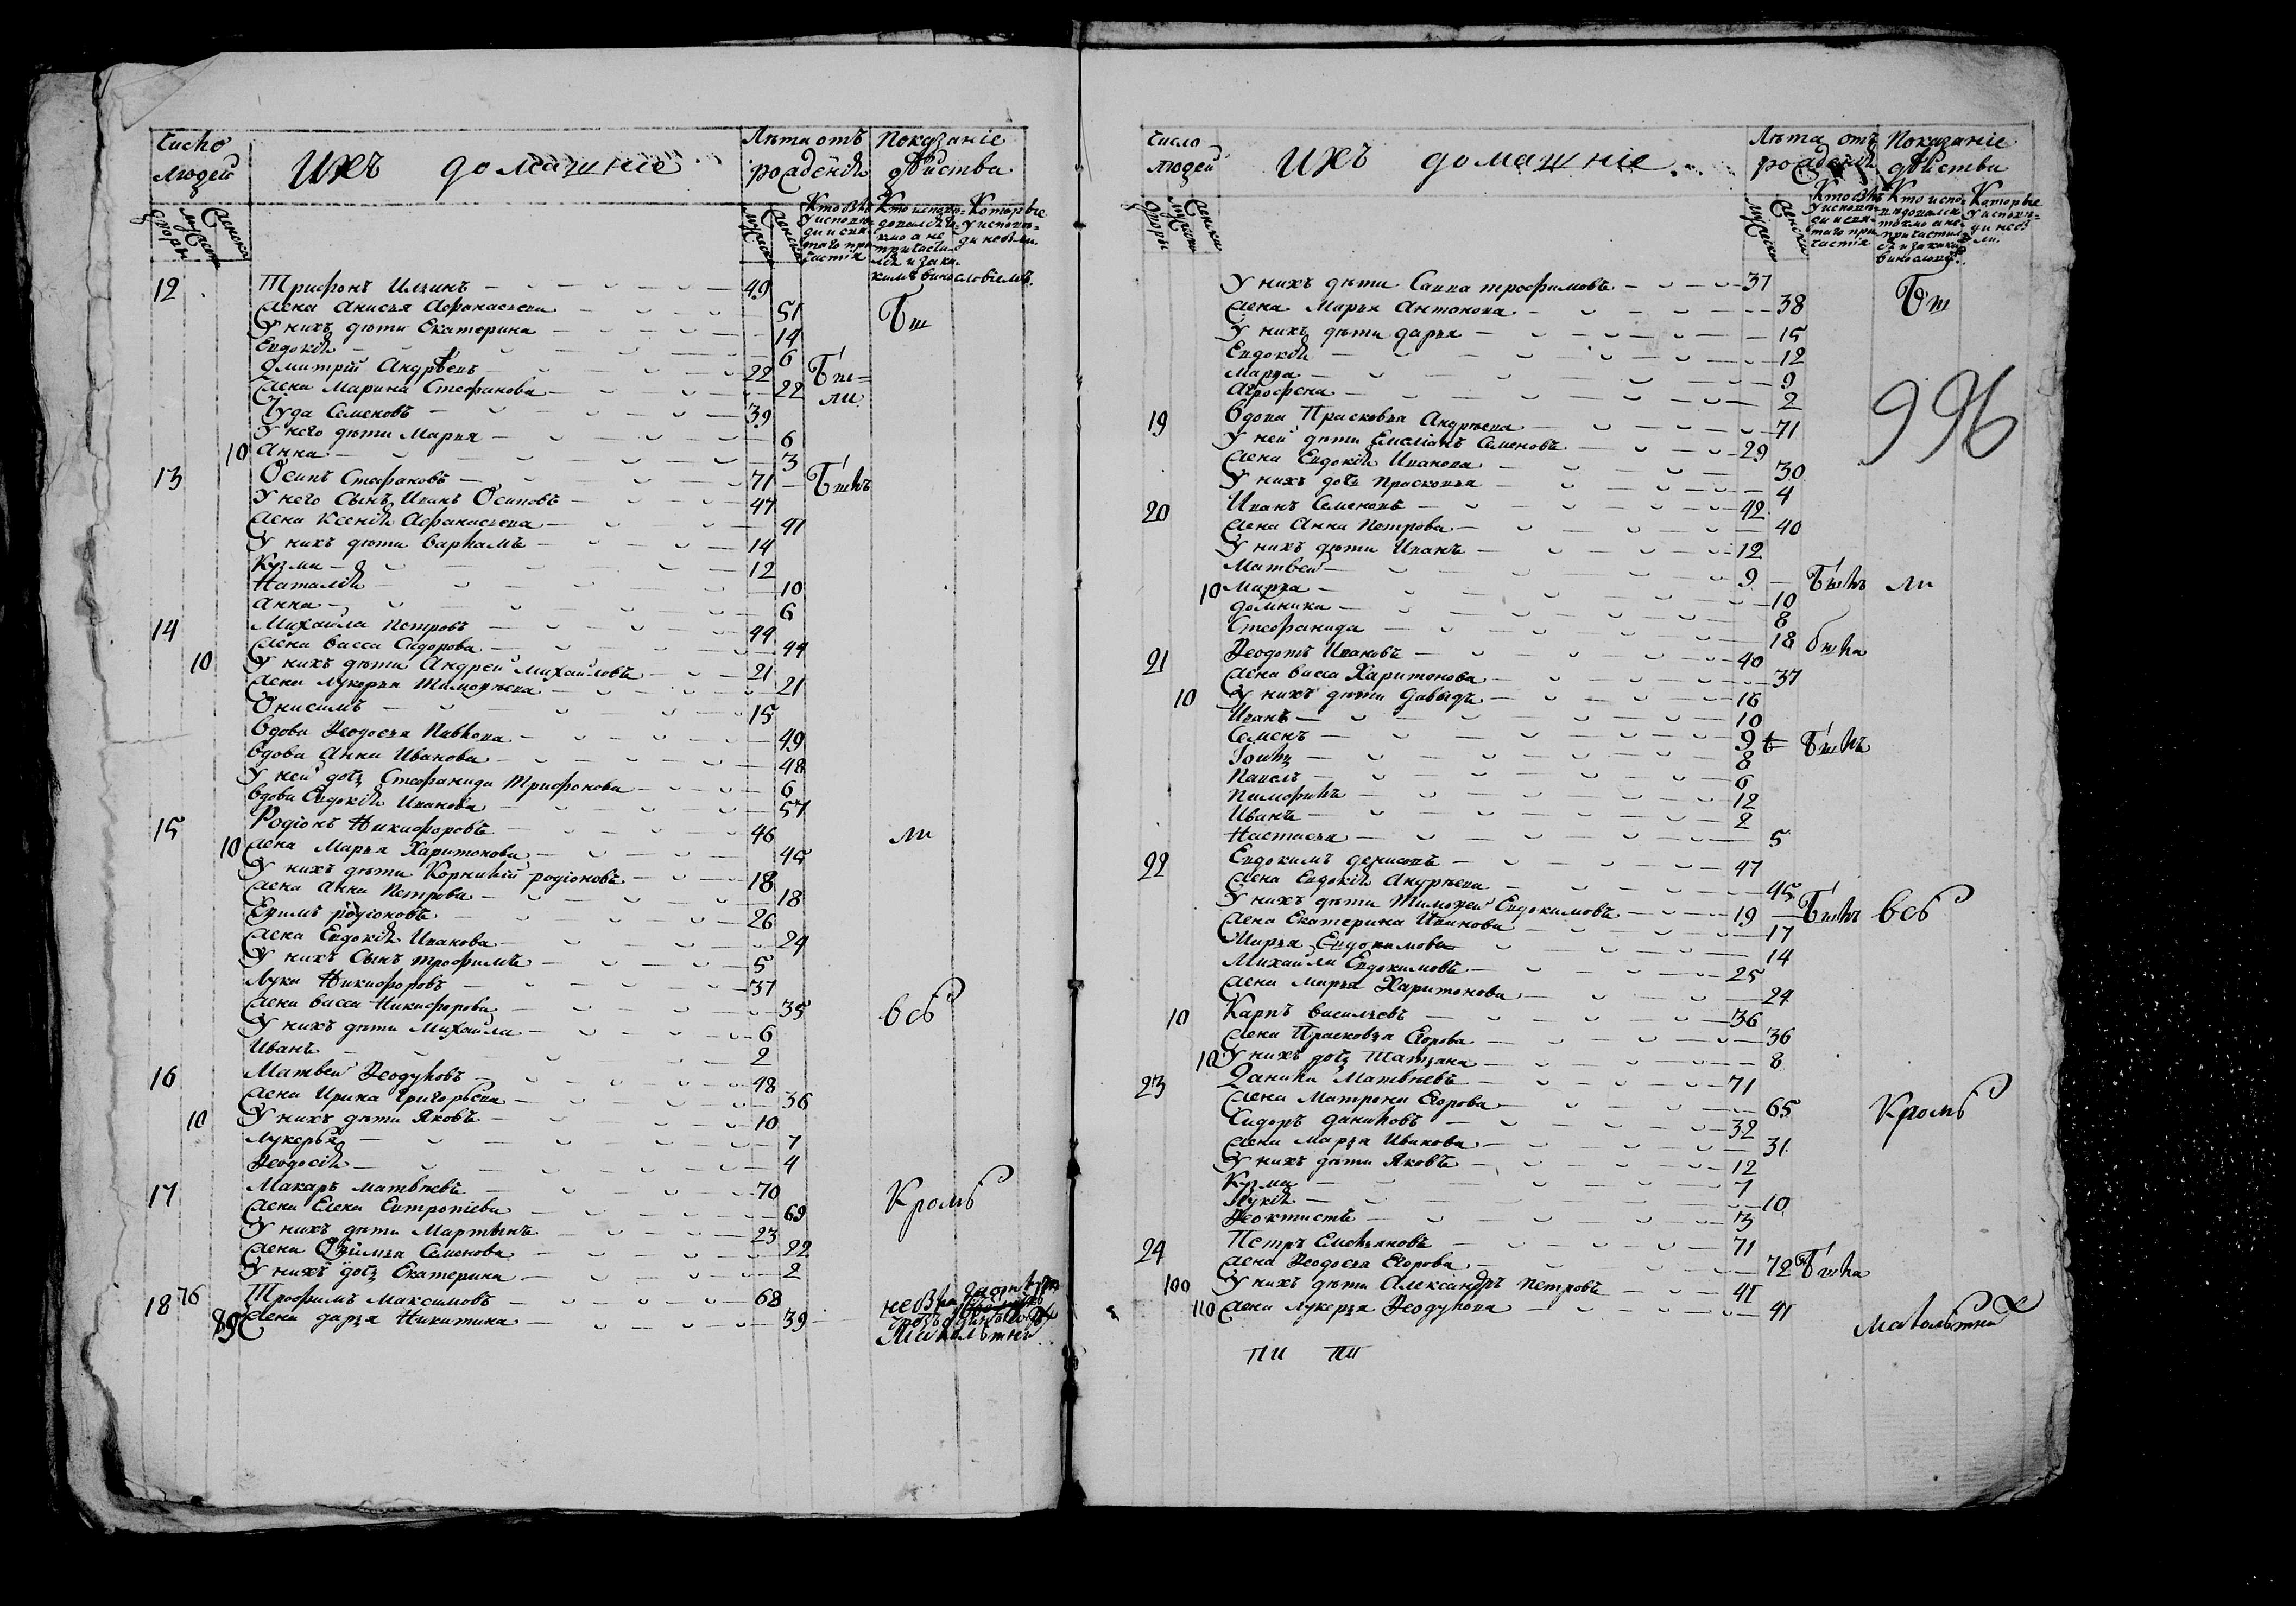 Число людей
Ихъ домашніе
Лѣта отъ рождения
Показаніе дѣйства
дворы мужеска женска
мужеска женска
Кто былъ у исповеди и святаго причастия
Кто исповедовался токмо а не причастился и за какимъ винословіемъ
Которые у исповеди не были
12 Трифонъ Илинъ 49
Жена Анисья Афонасьева 51 Бы
У нихъ дѣти Екатерина 14
Евдокия 6
Дмитрий Андрѣевъ 22 Бы=
Жена Марина Стефанова 22 ли
Иуда Семеновъ 39
У него дѣти Марья 6
10 Анна 3
13 Осипъ Стефановъ 71 Былъ
У него Сынъ Иванъ Осиповъ 47
Жена Ксения Афанасьева 47
У нихъ дѣти Варламъ 14
Кузма 12
Наталия 10
Анна 6
14 Михайла Петровъ 44
Жена Васса Сидорова 44
10 У нихъ дѣти Андрей Михайловъ 21
Жена Лукерья Тимофѣева 21
Онисимъ 15
Вдова Феодосья Павлова 49
Вдова Анна Иванова 48
У ней дочь Стефанида Трифонова 6
Вдова Евдокия Иванова 57
15 Родіонъ Никифоровъ 46 ли
10 Жена Марья Харитонова 45
У нихъ дѣти Корнилий Родіоновъ 18
Жена Анна Петрова 18
Ефимъ Родіоновъ 26
Жена Евдокия Иванова 24
У нихъ Сынъ Трофимъ 5
Лука Никифоровъ 37
Жена Васса Никифорова 35 всѣ
У нихъ дѣти Михайла 6
Иванъ 2
16 Матвей Феодуловъ 48
Жена Ирина Григорьева 36
10 У нихъ дѣти Яковъ 10
Лукерья 7
Феодосия 4
17 Макаръ Матвѣевъ 70 Кромѣ
Жена Елена Евтропіева 69
У нихъ дѣти Мартынъ 23
Жена Фимья Семенова 22
У нихъ дочь Екатерина 2
18 76 Трофимъ Максимовъ 68
89 Жена Дарья Никитина 39
Малолѣтных
Число людей
Ихъ домашніе
Лѣта отъ рождения
Показаніе дѣйства
дворы мужеска женска
мужеска женска
Кто былъ у исповеди и святаго причастия
Кто исповедовался токмо а не причастился и за какимъ винословіемъ
Которые у исповеди не были
У нихъ дѣти Савва Трофимовъ 37
Жена Марья Антонова 38 Бы
У нихъ дѣти Дарья 15
Евдокия 12
Марѳа 9
Агрофена 2
996
19 Вдова Прасковья Андрѣева 71
У ней дѣти Емеліанъ Семеновъ 29
Жена Евдокия Иванова 30
У нихъ дочь Прасковья 4
20 Иванъ Семеновъ 42
Жена Анна Петрова 40
У нихъ дѣти Иванъ 12
Матвей 9 Былъ ли
10 Марѳа 10
Домника 8
Стефанида 18 была
21 Феодотъ Ивановъ 40
Жена Васса Харитонова 37
10 У нихъ дѣти Давыдъ 16
Иванъ 10
Семенъ 9 Былъ
8
Павелъ 6
12
Иванъ 2
Настасья 5
22 Евдокимъ 47
Жена Евдокия Андрѣева 45
У нихъ дѣти Тимофей Евдокимовъ 19 Былъ всѣ
Жена Екатерина Иванова 17
Марья Евдокимова 14
Михайла Евдокимовъ 25
Жена Марья Харитонова 24
10 Карпъ Васильевъ 36
Жена Прасковья Егорова 36
10 У нихъ дочь Татьяна 8
23 Данила Матвѣевъ 71
Жена Матрона Егорова 65 Кромѣ
Сидоръ Даниловъ 32
Жена Марья Иванова 31
У нихъ дѣти Яковъ 12
Кузма 7
Лукия 10
Феоктистъ 3
24 Петръ Емельяновъ 71
Жена Феодосья Егорова 72 Была
100 У нихъ дѣти Александръ Петровъ 41
110 Жена Лукерья Феодулова 41 Малолѣтных